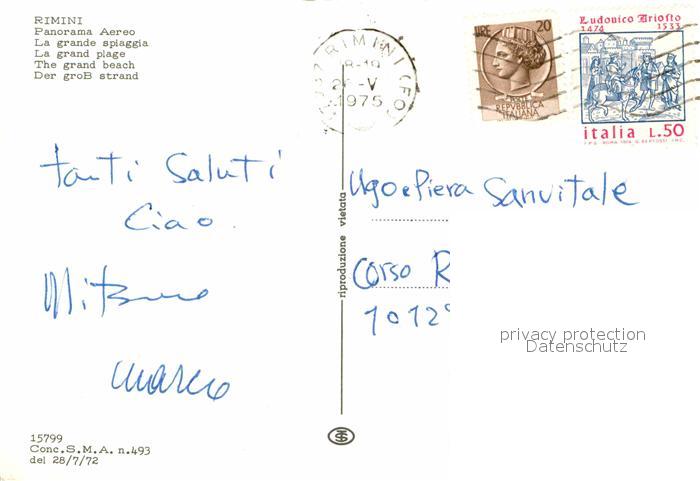 RIMINI
Panorama Aereo
La grande spiaggia
La grand plage
The grand beach
Der groB strand
RIMINI (FO)
1975
LIRE 20
REPVBBLICA
ITALIANA
Ludovico Ariosto
1474 1533
italia L.50
tanti Saluti
Ciao
marco
riproduzione vietata
Ugo e Piera Sanvitale
Corso R
1012
privacy protection
Datenschutz
15799
Conc.S.M.A. n.493
del 28/7/72